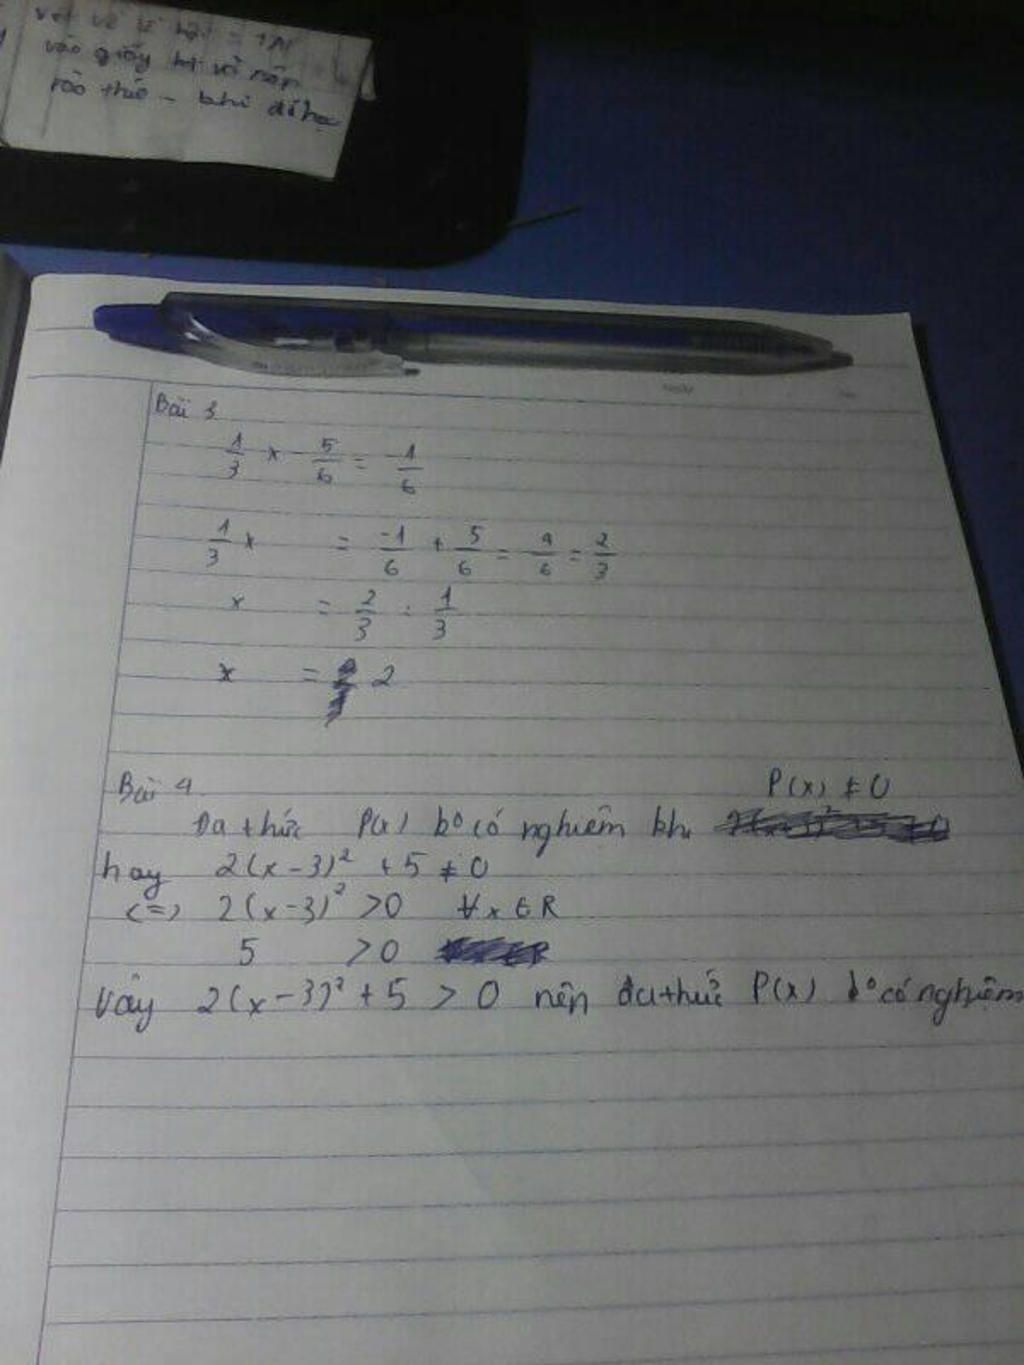 vào giấy
rồi thi - khi đi học
Bài 3
1/3 x - 5/6 = -1/6
1/3 x = -1/6 + 5/6 = 4/6 = 2/3
x = 2/3 : 1/3
x = 2
Bài 4
P(x) ≠ 0
Đa thức P(x) k° có nghiệm khi
hay 2(x-3)² + 5 ≠ 0
<=> 2(x-3)² > 0 ∀x ∈ R
5 > 0
Vậy 2(x-3)² + 5 > 0 nên đa thức P(x) k° có nghiệm